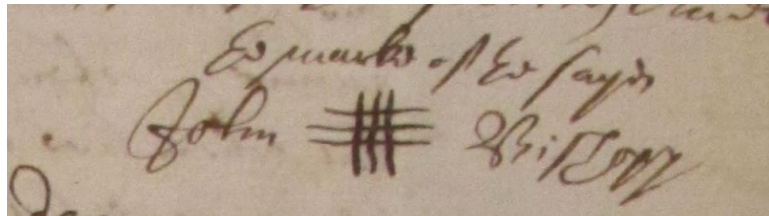 the marke of the sayd
John Bishopp